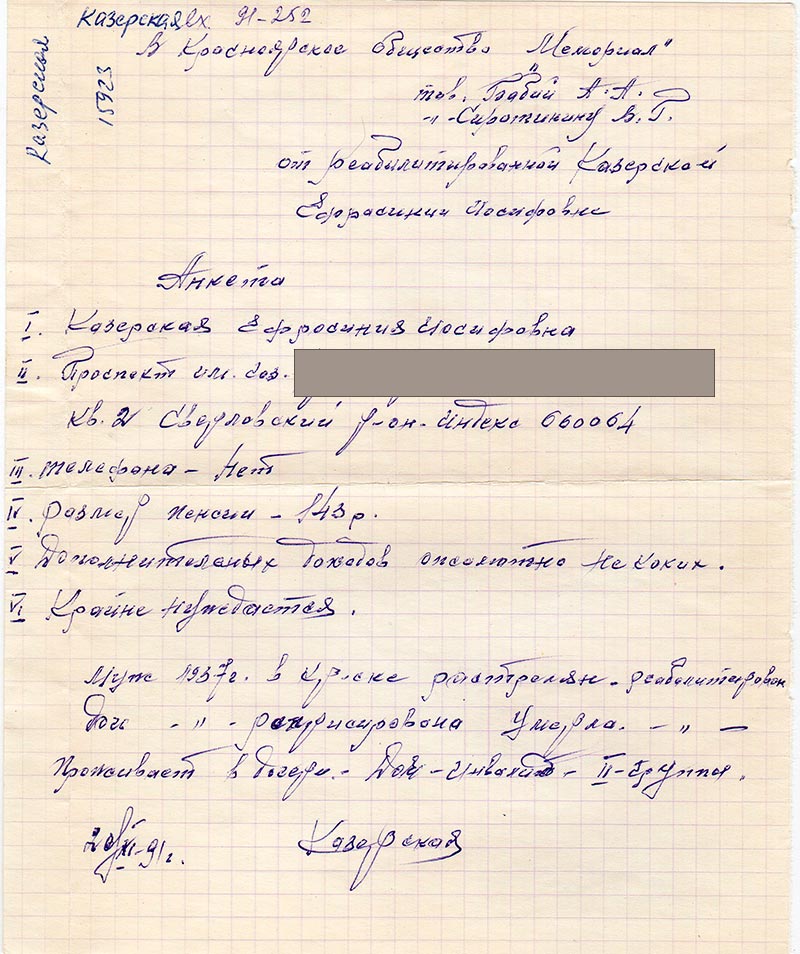 Казерская вх. 91-252
Казерская
15923
В Красноярское общество "Мемориал"
тов. Бабий А.А.
-"- Сиротинину В.Г.
от реабилитированной Казерской
Ефросинии Иосифовне
Анкета
I. Казерская Ефросиния Иосифовна
II. Проспект им. газ.
кв. 2 Свердловский р-он. индекс 660064
III. телефона - Нет
IV. размер пенсии - 143 р.
V. Дополнительных доходов опсолютно не каких.
VI. Крайне нуждается.
Муж 1937г. в Кр-ске растрелян - реабилитирован
Дочь -"- реприсирована Умерла. -"-
Проживает в дочери. - Дочь - инвалид - II-группы.
20/XI-91г. Казерская